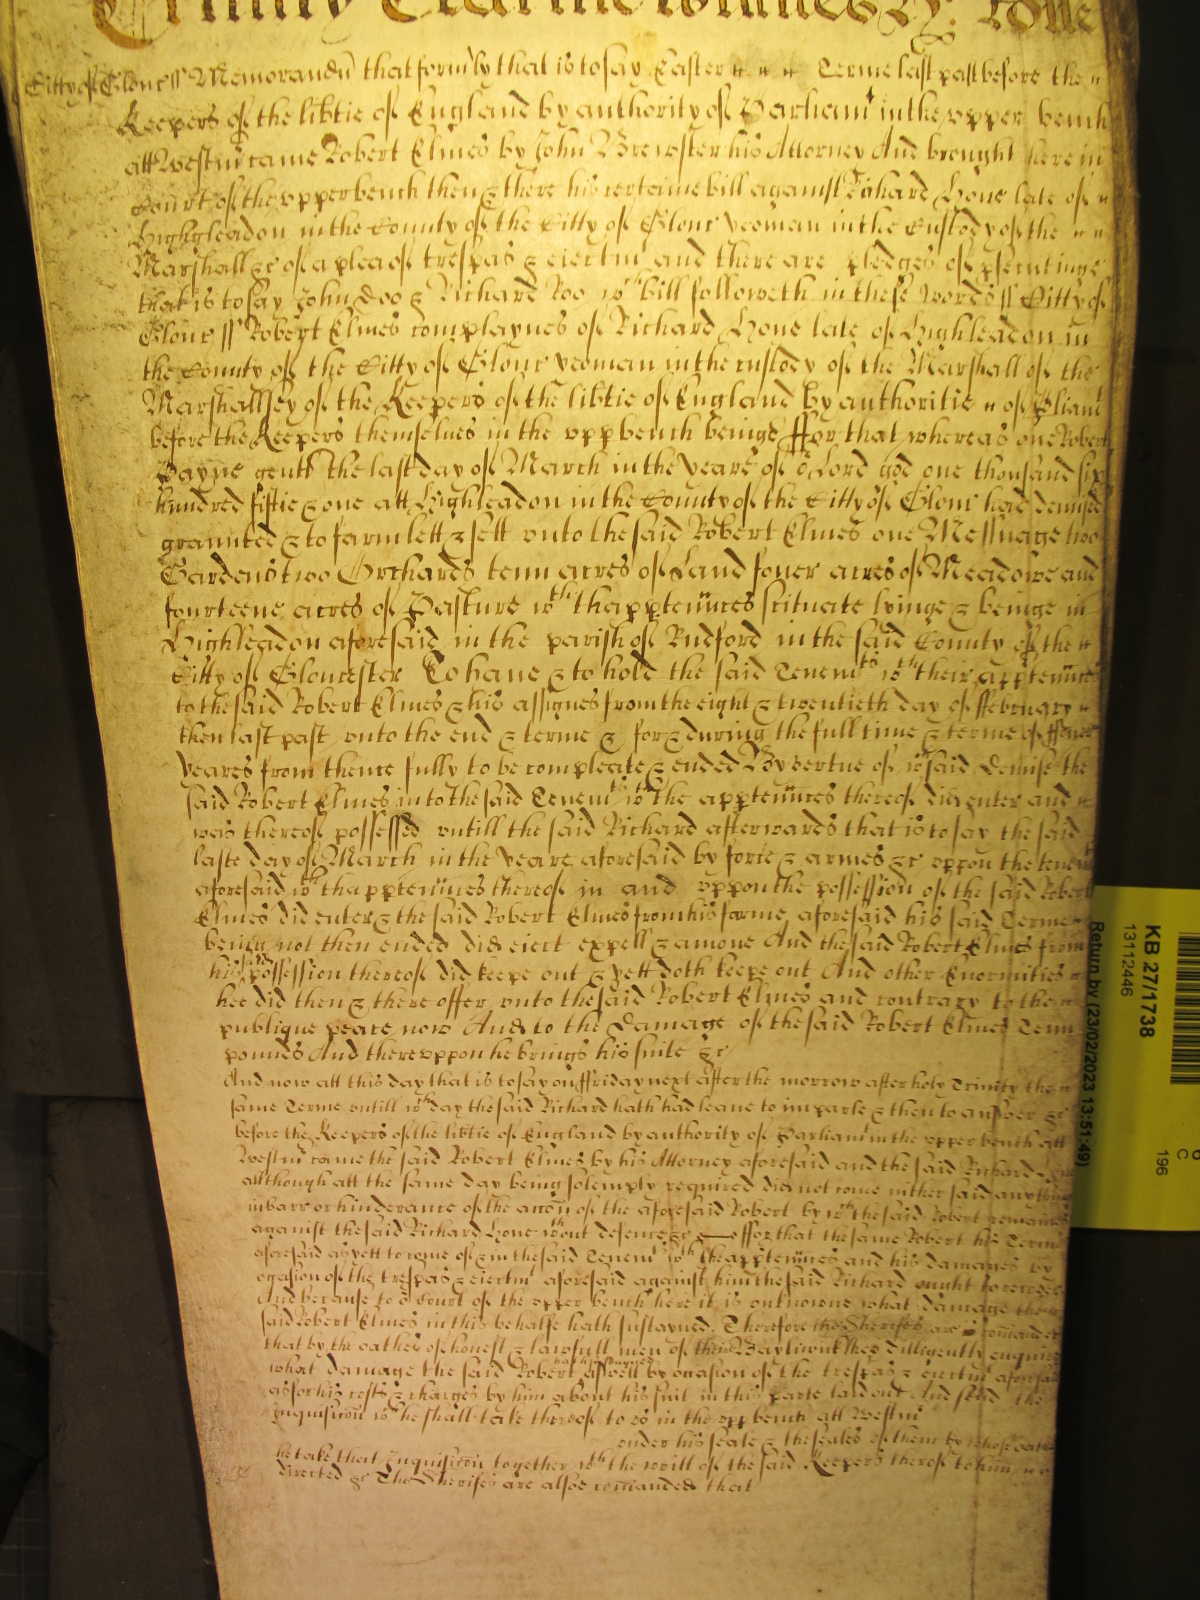 Trinity Tearme
Citty of Glouc ss Memorandu that formly that is to say Easter Terme last past before the
Keepers of the libtie of England by authority of Parliamt in the upper bench
att Westm came Robert Elmes by John Brewster his Attorney And brought here in
Court of the upper bench then & there his certaine bill against Richard Hone late of
Highleadon in the County of the Citty of Glouc yeoman in the Custody of the
Marshall &c of a plea of trespas & eiectmt and there are pledges of psecutinge
that is to say John Doo & Richard Roo wch bill followeth in these words ss Citty of
Glouc ss Robert Elmes complaynes of Richard Hone late of Highleadon in
the County of the Citty of Glouc yeoman in the custody of the Marshall of the
Marshallsey of the Keepers of the libtie of England by authoritie of Pliamt
before the Keepers themselues in the upp bench beinge ffor that whereas one Robert
Payne gentt the last day of March in the yeare of or Lord god one thousand six
hundred fiftie & one att Highleadon in the County of the Citty of Glouc had demised
graunted & to farm lett & sett unto the said Robert Elmes one Messuage two
Gardens two Orchards tenn acres of Land fouer acres of Meadowe and
fourteene acres of Pasture wth thapptennces scituate lyinge & beinge in
Highleadon aforesaid in the parish of Rudford in the said County of the
Citty of Gloucester To haue & to hold the said Tenemts wth their apptennces
to the said Robert Elmes & his assignes from the eight & twentieth day of ffebruary
then last past unto the end & terme & for & during the full time & terme of
yeares from thence fully to be compleate & ended By vertue of wch said demise the
said Robert Elmes into the said Tenemts wth the apptennces thereof did enter and
was thereof possessed untill the said Richard afterwards that is to say the said
laste day of March in the yeare aforesaid by force & armes &c uppon the tenemts
aforesaid wth thapptennces thereof in and uppon the possession of the said Robert
Elmes did enter & the said Robert Elmes from his farme aforesaid his said Terme
being not then ended did eiect expell & amoue And the said Robert Elmes from
his said possession thereof did keepe out & yett doth keepe out And other Enormities
hee did then & there offer unto the said Robert Elmes and contrary to the
publique peace now And to the Damage of the said Robert Elmes Tenn
pounds And thereuppon he brings his suite &c
And now att this day that is to say on ffriday next after the morrow after holy Trinity the
same Terme untill wch day the said Richard hath had leaue to imparle & then to answer &c
before the Keepers of the libtie of England by authority of Parliamt in the upper bench att
Westm came the said Robert Elmes by his Attorney aforesaid and the said Richard Hone
allthough att the same day being solemply required did not come nither said anything
in barr or hinderance of the accon of the aforesaid Robert by wch the said Robert remaines
against the said Richard Hone wthout defence &c ffor that the same Robert his Terme
aforesaid as yett to come of & in the said Tenemts wth thapptennces and his damages by
ocasion of the trespas & eiectmt aforesaid against him the said Richard ought to recover
And because to or Court of the upper bench here it is unknowne what damage the
said Robert Elmes in this behalfe hath sustayned. Therefore the Sherifes are comanded
that by the oathes of honest & lawfull men of their Baylywick they dilligently enquire
what damage the said Robert hath sustayned aswell by ocasion of the trespas & eiectmt aforesaid
as for his costs & charges by him about his suit in this parte laid out And send the
Inquisicon wch he shall take thereof to us in the upp bench att Westm
under his seale & the seales of them by whose oath
he take that Inquisicon together wth the writt of the said Keepers thereof to him
directed &c The Sherifes are alsoe comanded that
KB 27/1738
13112446
Return by (23/02/2023 13:51:49)
C
196